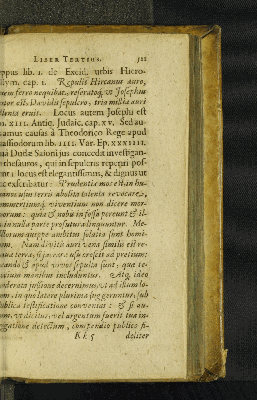 LIBER TERTIUS. 521
ippus lib. 1. de Excid. urbis Hiero-
solym. cap. 1. Repulsis Hircanus auro,
ferro nequibat, reseratoq́, ut Josephus
autor est, Davidis sepulcro, tria millia auri
talenta eruit. Locus autem Josephi est
XIII. Antiq. Judaic. cap. XV. Sed au-
amus causas à Theodorico Rege apud
Cassiodorum lib. IIII. Var. Ep. XXXIIII.
quâ Dudæ Saioni jus concedit investigan-
thesauros, qui in sepulcris reperiri pos-
sunt: locus est elegantissimus, & dignus ut
exscribatur: Prudentiæ mos est in hu-
manos usus terris abdita talenta revocare,
commerciumq́, viventium non dicere mor-
tuorum: quia & nobis infossa pereunt & il-
lis in nulla parte profutura linquuntur. Me-
tallorum quippe ambitus solatia sunt homi-
num. Nam divitis auri vena similis est re-
liquæ terræ, si jaceat: usu crescit ad pretium:
quando & apud vivos sepulta sunt, quæ te-
nacium manibus includuntur. Atq́, ideo
moderata jussione decernimus, ut ad illum lo-
cum, in quo latere plurima suggeruntur, sub
publica testificatione convenias: & si au-
rum, ut dicitur, vel argentum fuerit tua in-
dagatione detectum, compendio publico fi-
Kk 5 deliter